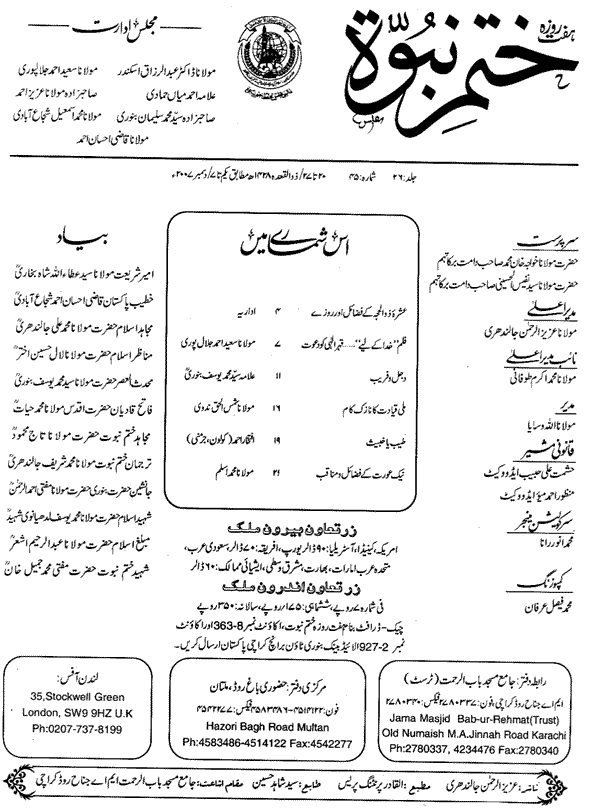 ہفت روزہ
ختم نبوۃ
مجلس ادارت
مولانا ڈاکٹر عبدالرزاق اسکندر
مولانا سعید احمد جلالپوری
علامہ احمد میاں حمادی
صاحبزادہ مولانا عزیز احمد
صاحبزادہ سید محمد سلیمان بنوری
مولانا محمد اسمٰعیل شجاع آبادی
مولانا قاضی احسان احمد
جلد: ۲۶ شمارہ: ۴۵ ۲۰ تا ۲۷/ ذوالقعدہ ۱۴۲۸ھ مطابق یکم تا ۷/ دسمبر ۲۰۰۷ء
سرپرست
حضرت مولانا خواجہ خان محمد صاحب دامت برکاتہم
حضرت مولانا سید نفیس الحسینی صاحب دامت برکاتہم
مدیر اعلیٰ
مولانا عزیز الرحمٰن جالندھری
نائب مدیر اعلیٰ
مولانا محمد اکرم طوفانی
مدیر
مولانا اللہ وسایا
قانونی مشیر
حشمت علی حبیب ایڈووکیٹ
منظور احمد میؤ ایڈووکیٹ
سرکولیشن منیجر
محمد انور رانا
کمپوزنگ
محمد فیصل عرفان
اس شمارے میں
عشرۂ ذوالحجہ کے فضائل اور روزے ۴ اداریہ
فلم ”خدا کے لیے“..... قہر الٰہی کو دعوت ۷ مولانا سعید احمد جلال پوری
دجل و فریب ۱۱ علامہ سید محمد یوسف بنوریؒ
ملی قیادت کا نازک کام ۱۶ مولانا شمس الحق ندوی
طیب یا خبیث ۱۹ افتخار احمد (کولون، جرمنی)
نیک عورت کے فضائل و مناقب ۲۱ مولانا محمد اسلم
بیاد
امیر شریعت مولانا سید عطاء اللہ شاہ بخاریؒ
خطیب پاکستان قاضی احسان احمد شجاع آبادیؒ
مجاہد اسلام حضرت مولانا محمد علی جالندھریؒ
مناظر اسلام حضرت مولانا لال حسین اخترؒ
محدث العصر حضرت مولانا سید محمد یوسف بنوریؒ
فاتح قادیان حضرت اقدس مولانا محمد حیاتؒ
مجاہد ختم نبوت حضرت مولانا تاج محمودؒ
ترجمان ختم نبوت حضرت مولانا محمد شریف جالندھریؒ
جانشین حضرت بنوری حضرت مولانا مفتی احمد الرحمٰنؒ
شہید اسلام حضرت مولانا محمد یوسف لدھیانوی شہیدؒ
مبلغ اسلام حضرت مولانا عبدالرحیم اشعرؒ
شہید ختم نبوت حضرت مفتی محمد جمیل خانؒ
زر تعاون بیرون ملک
امریکہ، کینیڈا، آسٹریلیا: ۹۰ ڈالر یورپ، افریقہ: ۷۰ ڈالر، سعودی عرب،
متحدہ عرب امارات، بھارت، مشرق وسطی، ایشیائی ممالک: ۶۰ ڈالر
زر تعاون اندرون ملک
فی شمارہ ۷ روپے، ششماہی: ۱۷۵ روپے، سالانہ: ۳۵۰ روپے
چیک - ڈرافٹ بنام ہفت روزہ ختم نبوت، اکاؤنٹ نمبر 8-363 اور اکاؤنٹ
نمبر 2-927 الائیڈ بینک بنوری ٹاؤن برانچ کراچی پاکستان ارسال کریں۔
لندن آفس:
35,Stockwell Green
London, SW9 9HZ U.K
Ph:0207-737-8199
مرکزی دفتر: حضوری باغ روڈ، ملتان
فون: ۴۵۸۳۴۸۶-۴۵۱۴۱۲۲ فیکس: ۴۵۴۲۲۷۷
Hazori Bagh Road Multan
Ph:4583486-4514122 Fax:4542277
رابطہ دفتر: جامع مسجد باب الرحمت (ٹرسٹ)
ایم اے جناح روڈ کراچی، فون: ۲۷۸۰۳۳۷ فیکس: ۲۷۸۰۳۴۰
Jama Masjid Bab-ur-Rehmat(Trust)
Old Numaish M.A.Jinnah Road Karachi
Ph:2780337, 4234476 Fax:2780340
ناشر: عزیز الرحمٰن جالندھری مطبع: القادر پرنٹنگ پریس طابع: سید شاہد حسین مقام اشاعت: جامع مسجد باب الرحمت ایم اے جناح روڈ کراچی